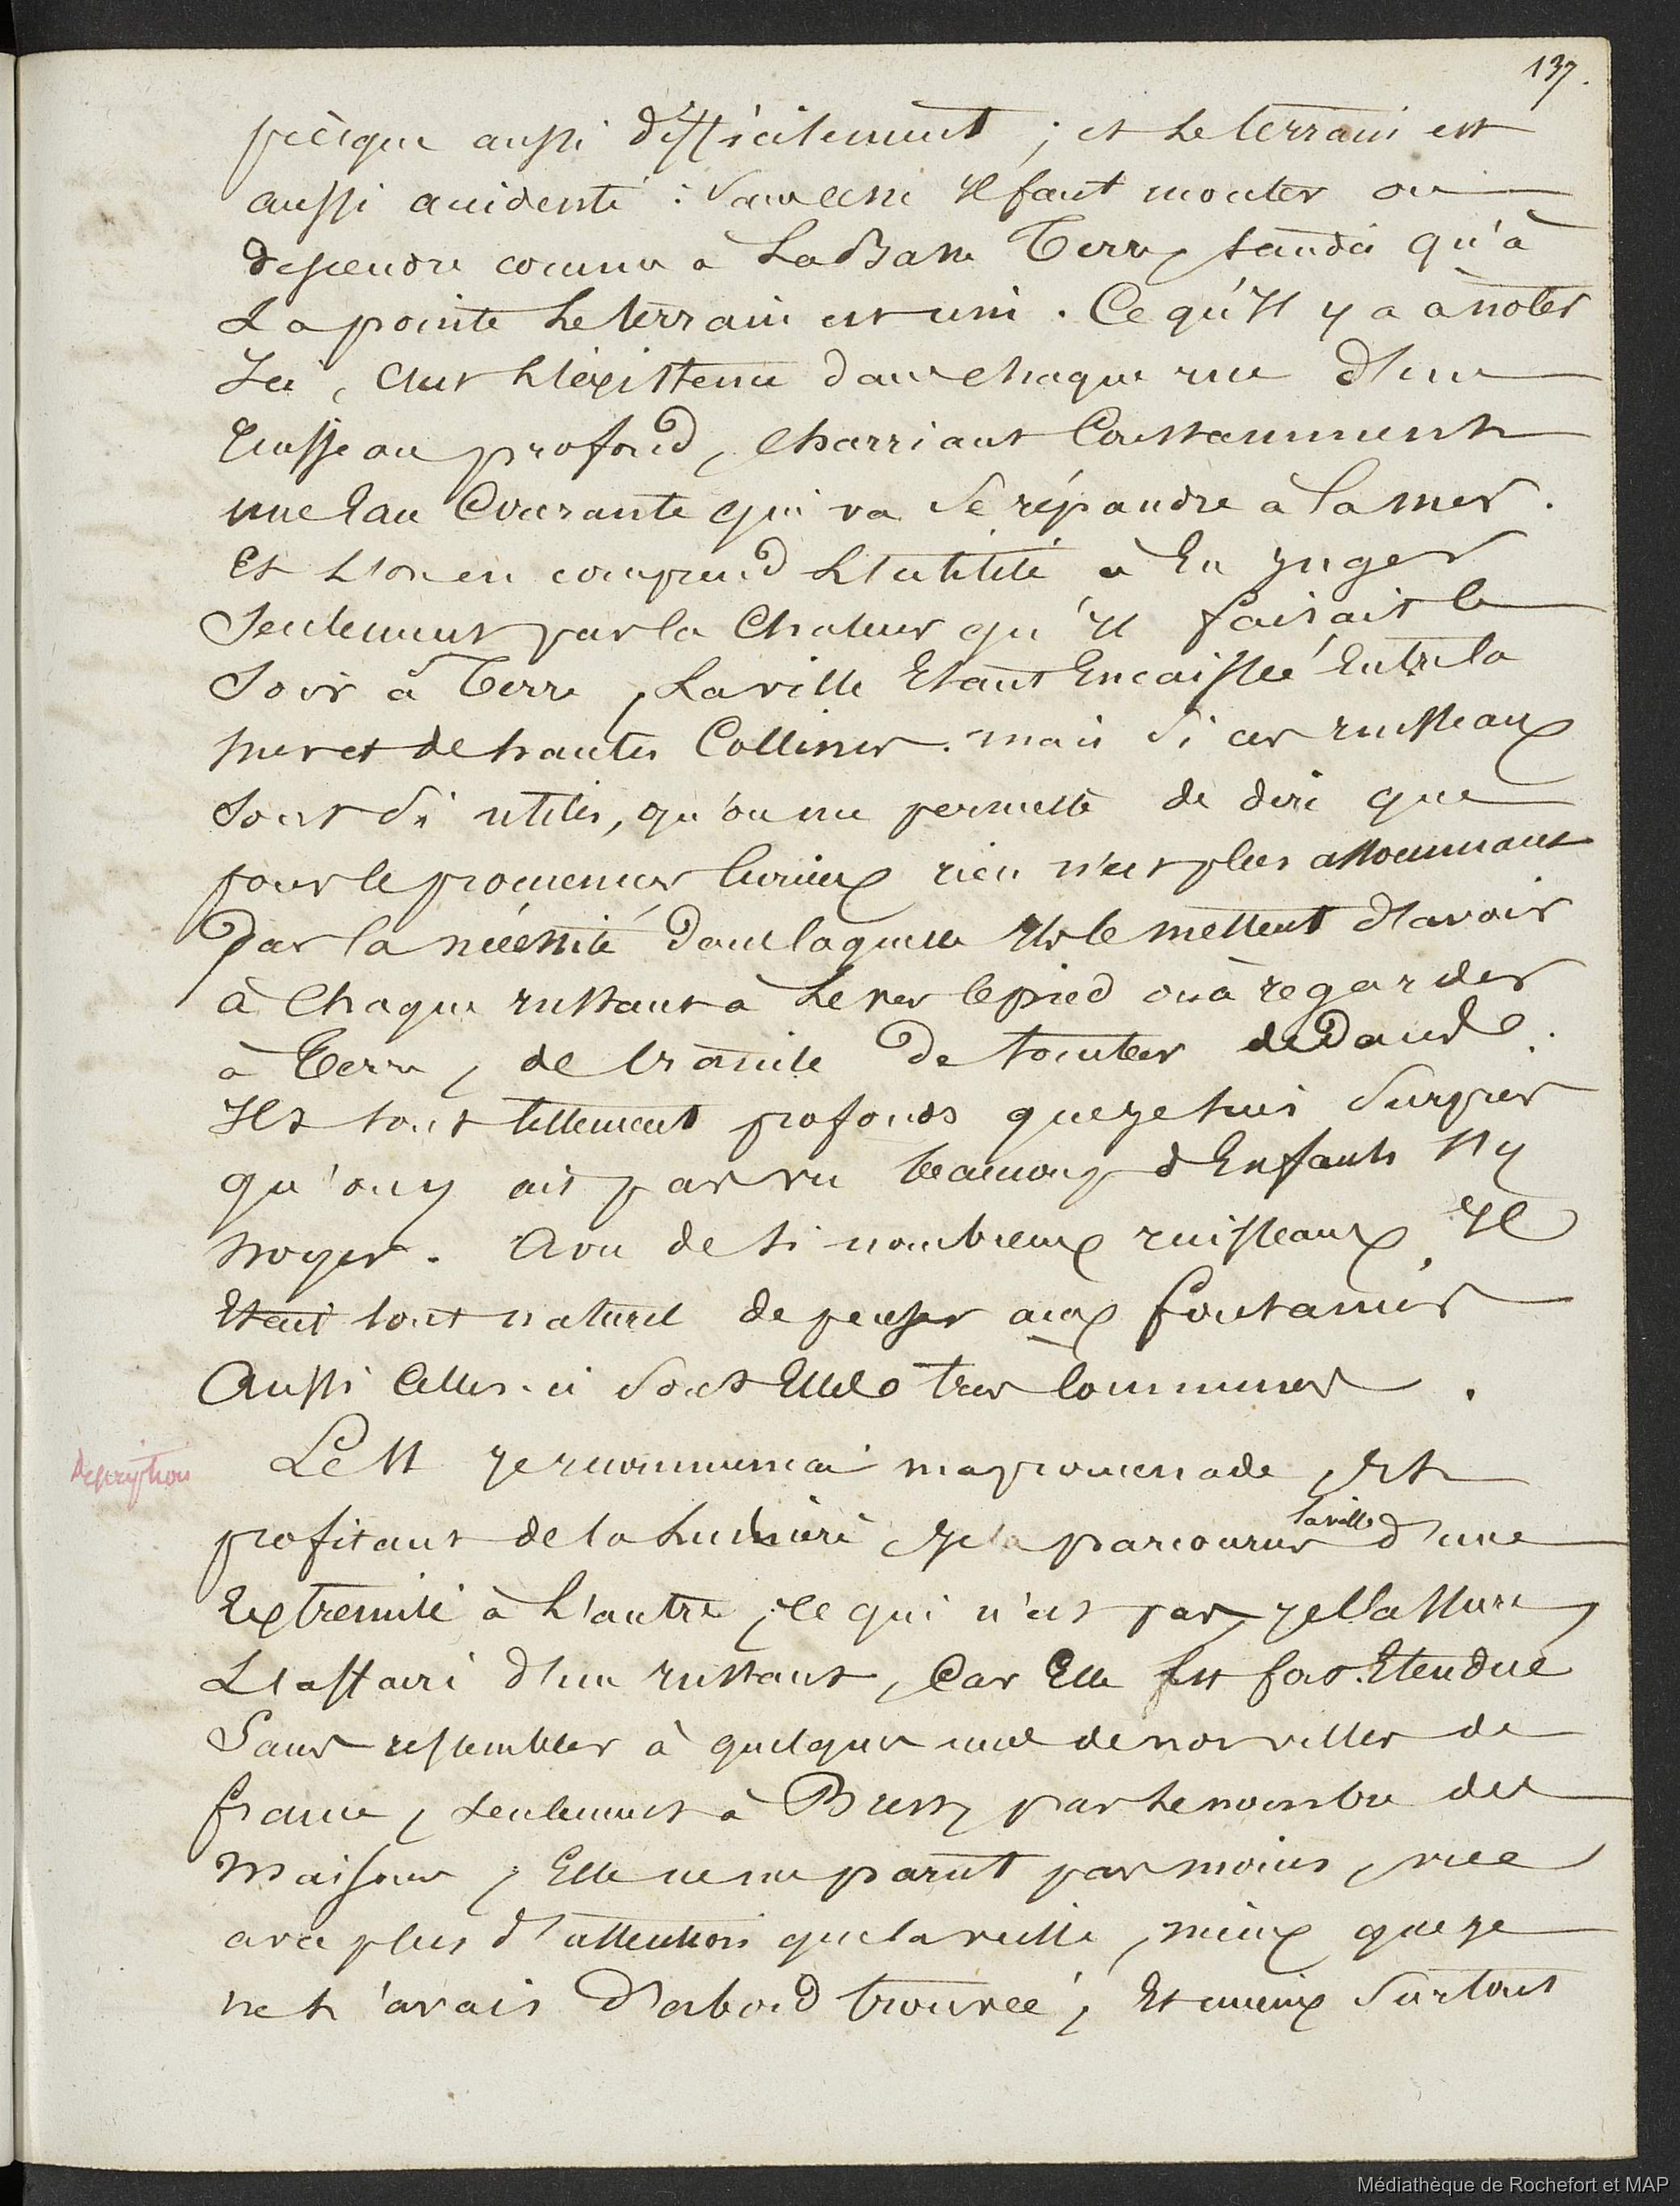 137.
presque aussi difficilement ; et le terrain est
aussi accidenté : sans cesse Il faut monter ou
descendre comme à La Basse Terre, tandis qu'à
La pointe Le terrain est uni . Ce qu'Il y a à noter
Ici, C'est L'existence dans chaque rue d'un
Ruisseau profond, Charriant Constamment
une Eau Courante qui va se répandre à la mer .
Et L'on en comprend L'utilité à En juger
Seulement par la Chaleur qu'Il faisait le
Soir à Terre, La ville Etant Encaissée Entre la
mer et de hautes Collines . mais si ces ruisseaux
sont si utiles, qu'on me permette de dire que
pour le promeneur Curieux rien n'est plus assommant
par la nécessité dans laquelle Ils le mettent d'avoir
à Chaque instant à Lever le pied ou à regarder
à Terre, de crainte de tomber dedans .
Ils sont tellement profonds que je suis surpris
qu'on y ait pas vu beaucoup d'Enfants s'y
noyer . A vu de si nombreux ruisseaux, Il
Etait tout naturel de penser aux fontaines
Aussi Celles-ci sont Elles très Communes .
Description
Le 11 je recommençai ma promenade, Et
profitant de la Lumière je la parcourus la ville d'une
Extremité à L'autre, ce qui n'est pas, je l'assure,
L'affaire d'un instant, Car Elle est fort Etendue
Sans ressembler à quelques une de nos villes de
france, seulement à Brest, par Le nombre des
Maisons, Elle ne me parut pas moins, vue
avec plus d'attention que la veille, mieux que je
ne L'avais d'abord trouvée, Et mieux surtout
Médiathèque de Rochefort et MAP